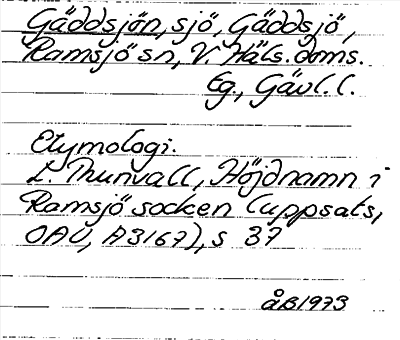 Gäddsjön, sjö, Gäddsjö,
Ramsjö sn, V. Häls. doms.
Eg., Gävl. l.
Etymologi.
L. Thunvall, Höjdnamn i
Ramsjö socken (uppsats,
OAU, A3167), s 37
ÅB 1973